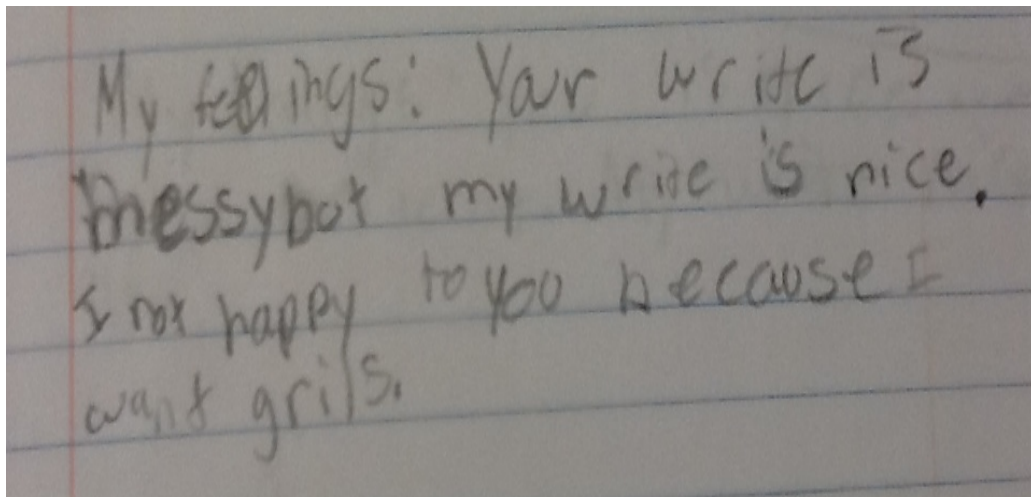 My feelings: Your write is
messy but my write is nice.
I not happy to you because I
want grils.